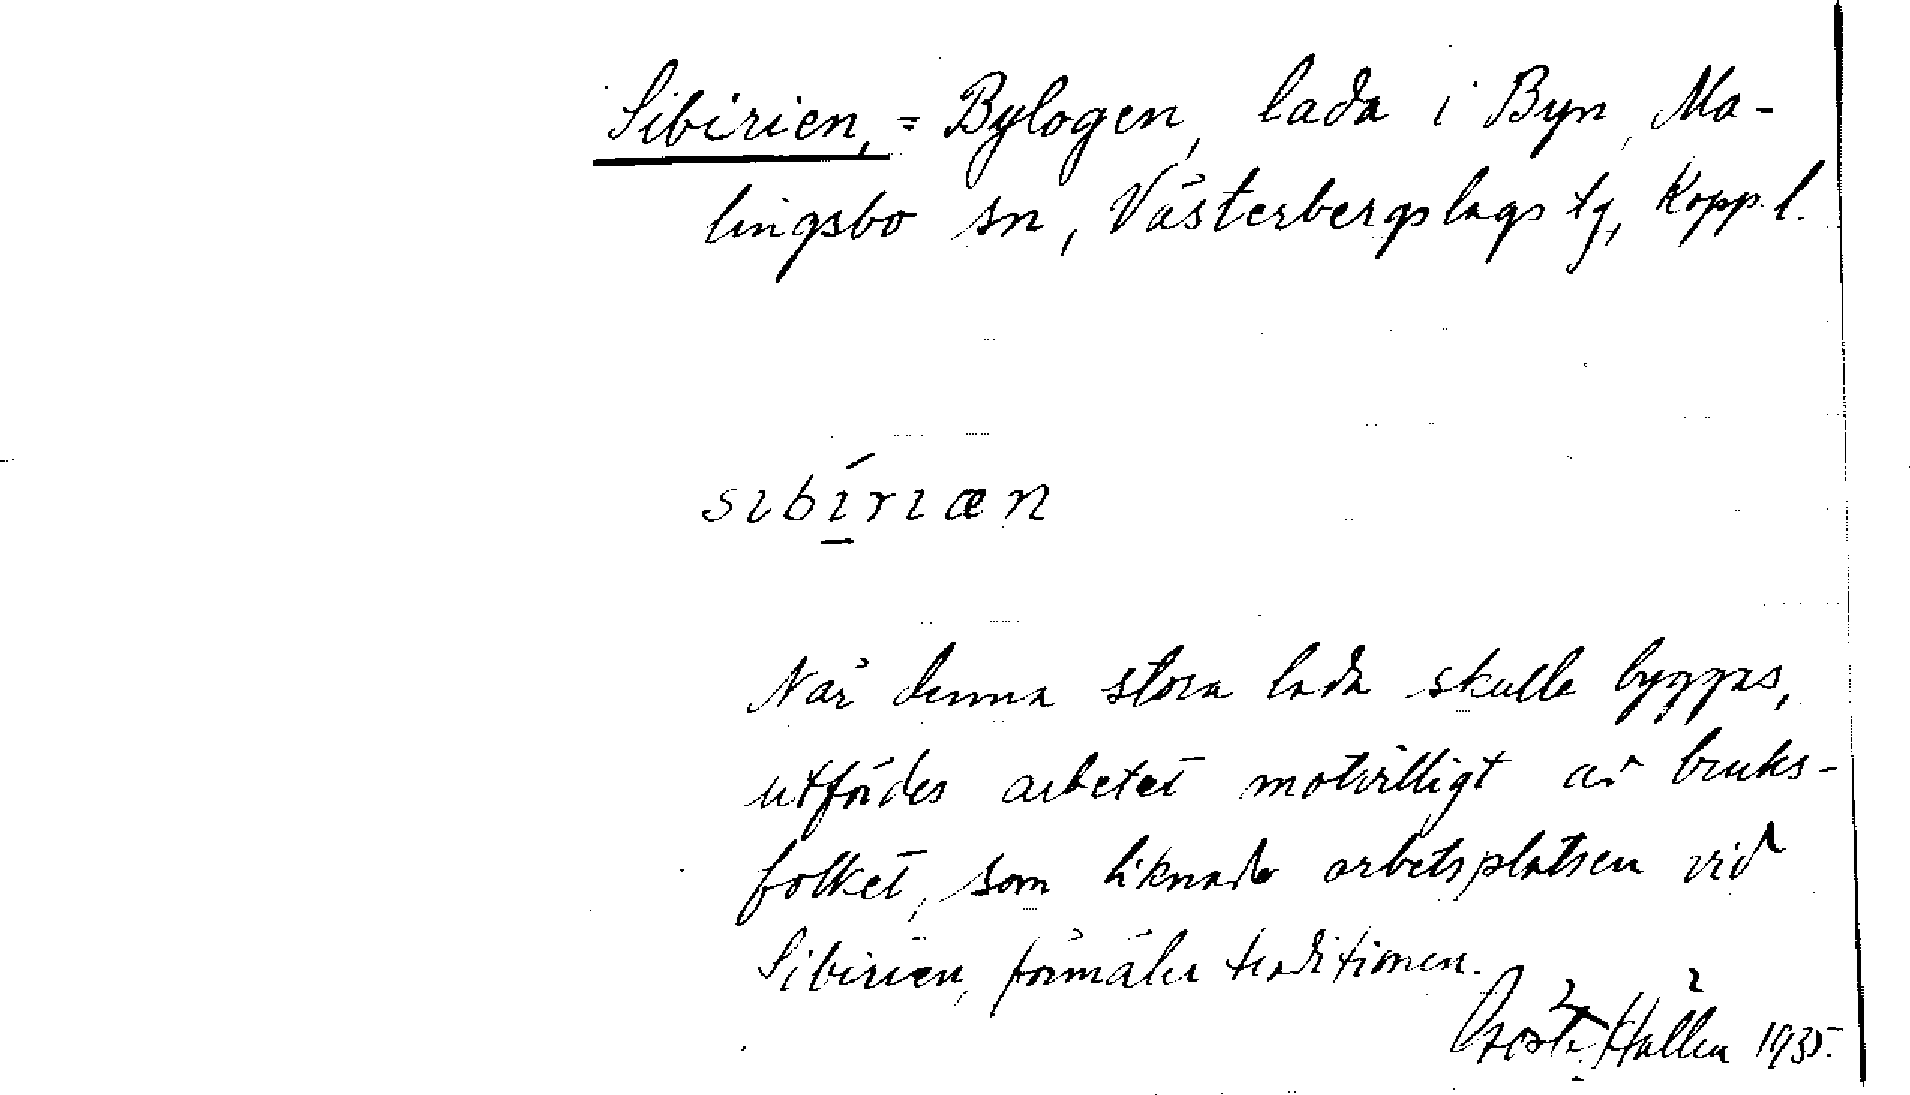 Sibirien, = Bylogen, lada i Byn, Ma-
lingsbo sn, Västerbergslags tg, Kopp. l.
sıbíriæn
När denna stora lada skulle byggas,
utfördes arbetet motvilligt av bruks-
folket, som liknade arbetsplatsen vid
Sibirien, förmäler traditionen.
Gösta Hallén 1935.